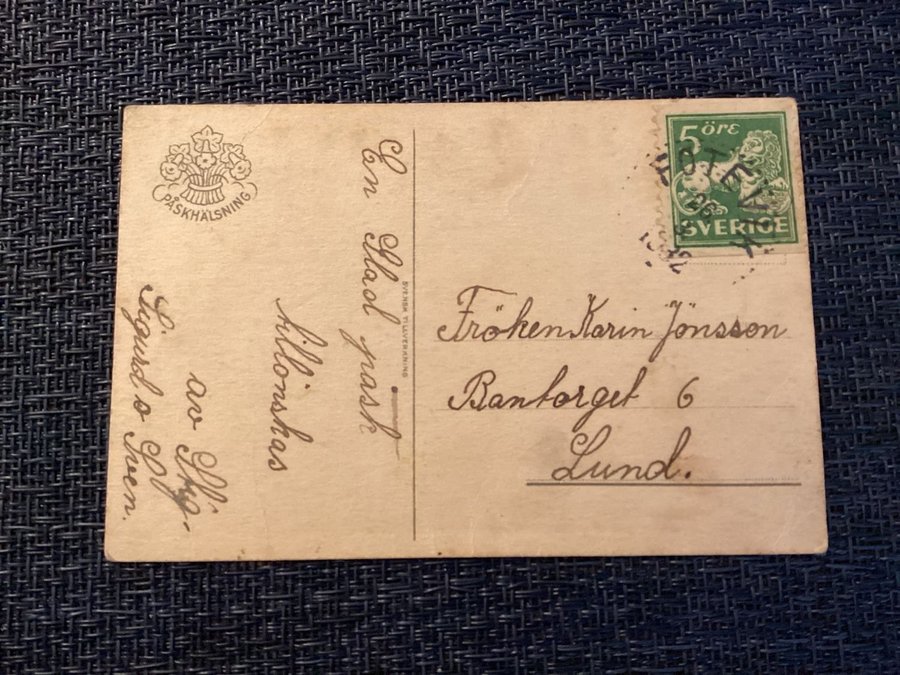 PÅSKHÄLSNING
En Glad påsk
tillönskas
av Stig,
Sigurd o Sven.
SVENSK TILLVERKNING
5 öre
SVERIGE
Fröken Karin Jönsson
Bantorget 6
Lund.